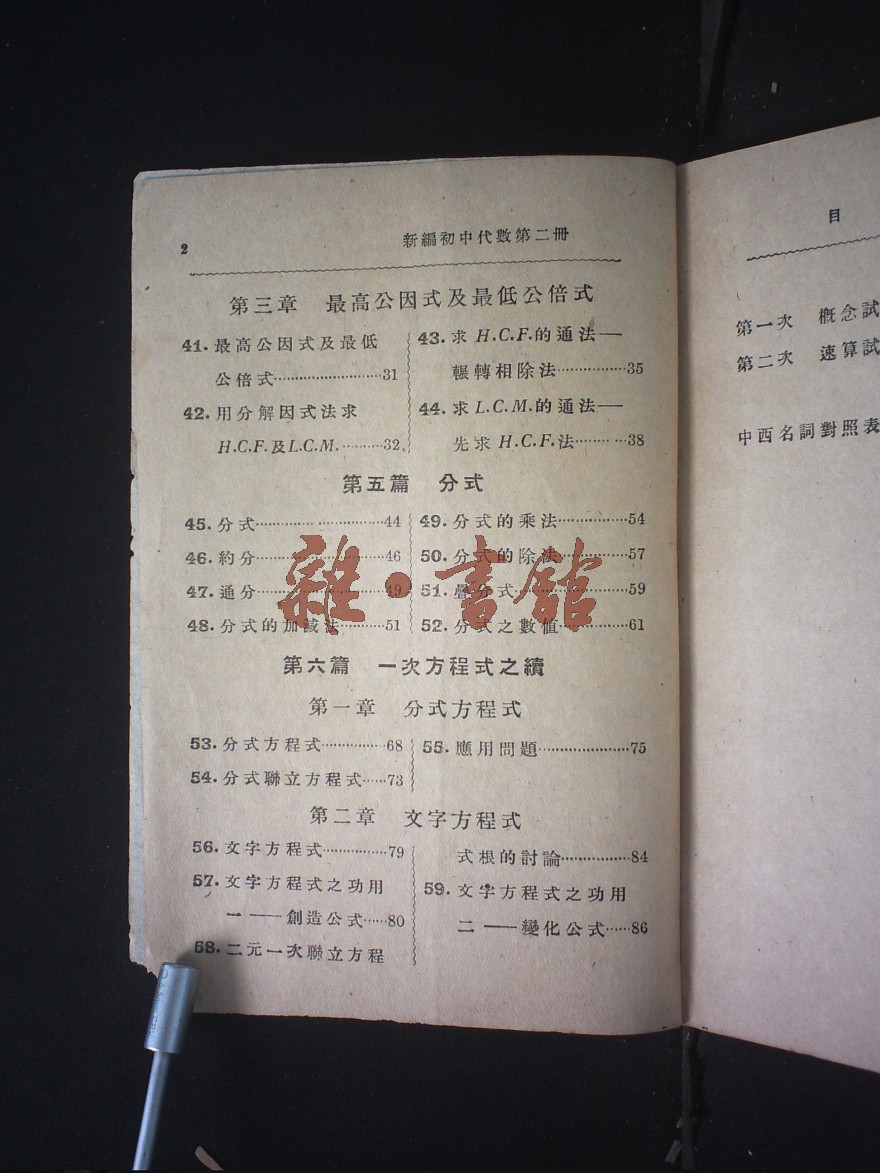 2
新編初中代數第二冊
第三章 最高公因式及最低公倍式
41. 最高公因式及最低
公倍式……………………31
42. 用分解因式法求
H.C.F.及L.C.M.………32
43. 求 H.C.F.的通法——
輾轉相除法……………35
44. 求 L.C.M.的通法——
先求 H.C.F.法…………38
第五篇 分式
45. 分式……………………44
46. 約分……………………46
47. 通分……………………49
48. 分式的加減法…………51
49. 分式的乘法……………54
50. 分式的除法……………57
51. 疊分式…………………59
52. 分式之數值……………61
第六篇 一次方程式之續
第一章 分式方程式
53. 分式方程式……………68
54. 分式聯立方程式……73
55. 應用問題………………75
第二章 文字方程式
56. 文字方程式……………79
57. 文字方程式之功用
一——創造公式……80
58. 二元一次聯立方程
式根的討論……………84
59. 文字方程式之功用
二——變化公式……86
雜·書館
目
第一次 概念試
第二次 速算試
中西名詞對照表